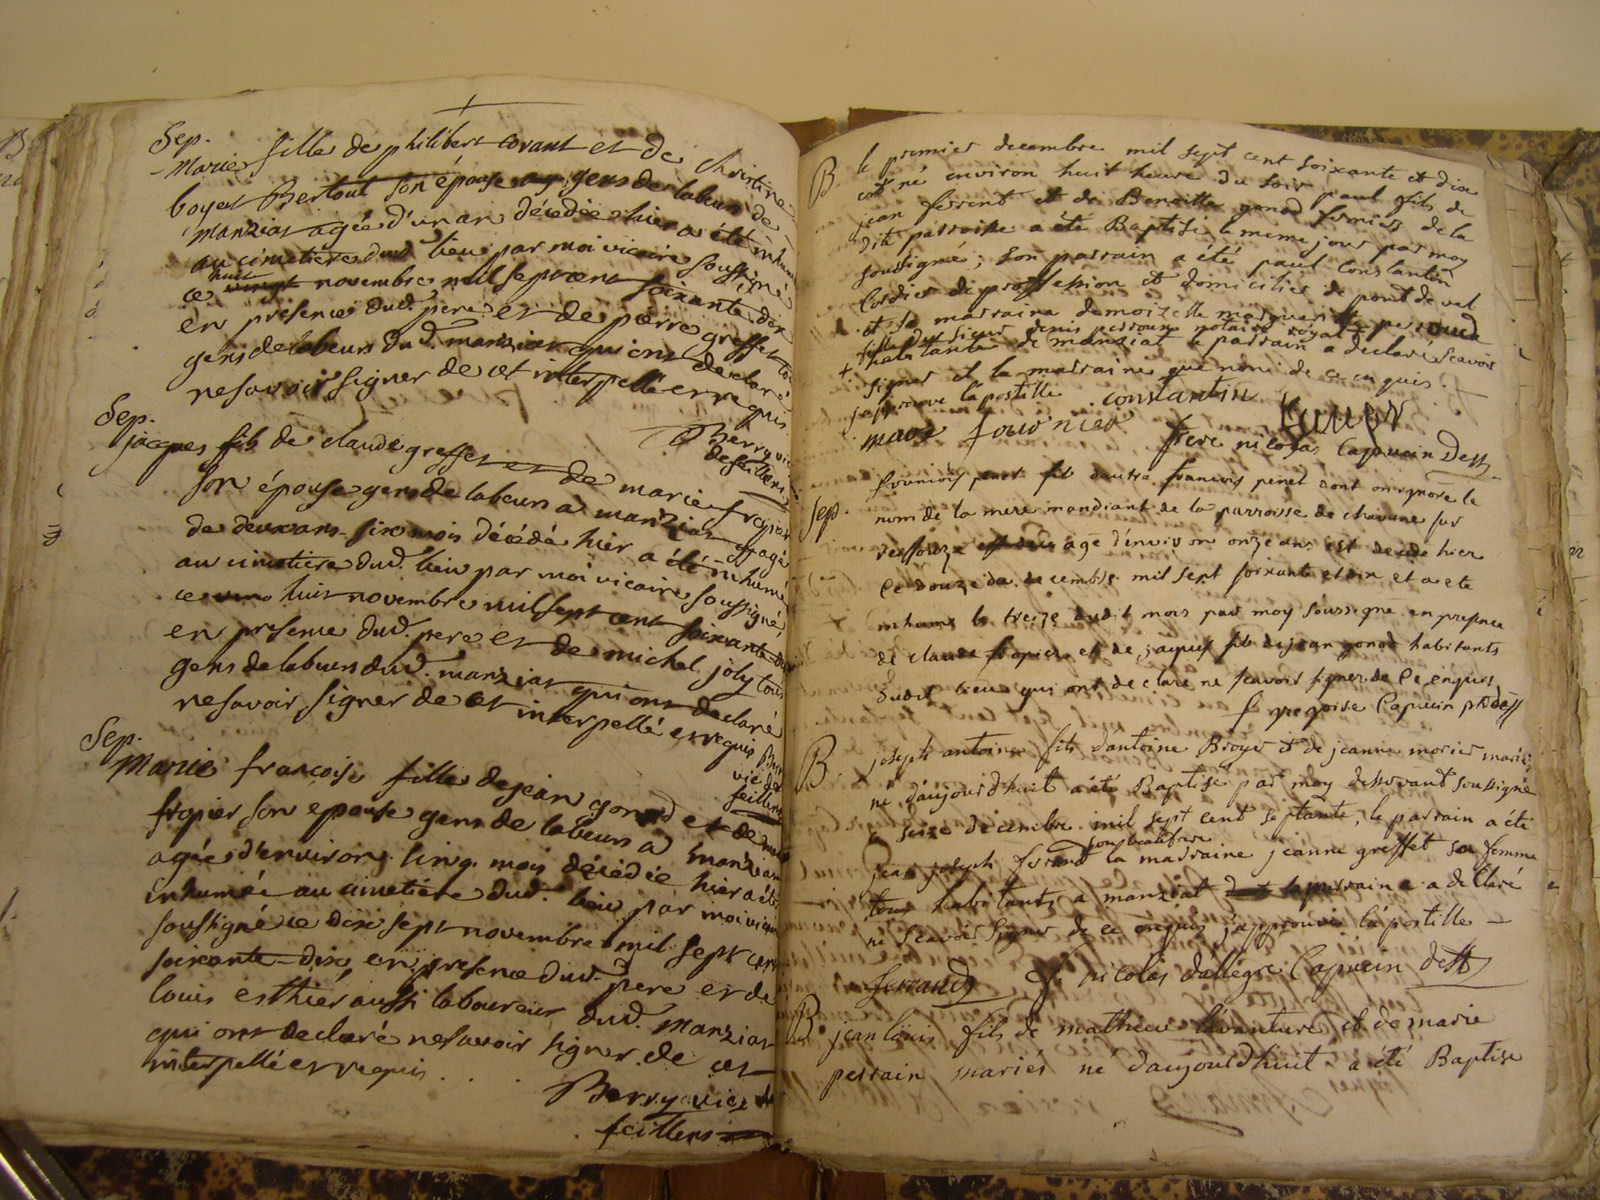 Sep.
Marie fille de philibert Corant et de Christine
boyer Bertout son épouse gens de labeur de
manziat agée d'un an décédée hier a été inhumée
au cimetiere dud. lieu par moi vicaire soussigné
ce huit novembre mil sept cent soixante dix
en présence dud. pere et de pierre greffet tous
gens de labeurs dud. manziat qui ont declaré
ne savoir signer de ce interpellé et requis
Berry vic
de feillens
Sep.
jacques fils de claude greffet et de marie fropier
son épouse gens de labeurs a manziat agé
de deux ans six mois décédé hier a été inhumé
au cimetiere dud. lieu par moi vicaire soussigné
ce huit novembre mil sept cent soixante dix
en presence dud. pere et de michel joly tous
gens de labeurs dud. manziat qui ont declaré
ne savoir signer de ce interpellé et requis
vic de
feillens
Sep.
Marie francoise fille de jean gonod et de
fropier son epouse gens de labeurs a manziat
agée d'environ cinq mois décédée hier a été
inhumée au cimetiere dud. lieu par moi vicaire
soussigné ce dix sept novembre mil sept cent
soixante-dix en presence dud. pere et de
louis esthier aussi laboureur dud. manziat
qui ont declaré ne savoir signer de ce
interpellé et requis
Berry vic de
feillens
B. le premier decembre mil sept cent soixante et dix
est né environ huit heure du soir paul fils de
jean ferrent et de Benoitte gonod fermier de la
dite parroisse a été Baptisé le meme jour par moy
soussigné; son parrain a été paul Constantin
Cordier de proffession et domicilier de pont de vel
et sa marraine demoiselle marguerite perroud
fille du sieur denis perroux notaire royal
+ habitante de manziat le parrain a declaré scavoir
signer et la marraine que non de ce enquis.
j'approuve la postille constantin
marx fournier
frere nicolas Capucin Dess
Sep. francois peret fils dautre francois peret dont on ignore le
nom de la mere mandiant de la parroisse de chavane sur
ressouze age denviron onze ans est decede hier
le douze de decembre mil sept soixante et dix et a ete
inhume le treize dudit mois par moy soussigne en presence
de claude fropier et de jaques fils de jean gonod habitants
dudit lieu qui ont declare ne scavoir signer de ce enquis
f gregoire Capucin pr dess
B joseph antoine fils d'antoine Broyer et de jeanne morier mariés
né d'aujourd'huit a été Baptisé par moy desservant soussigné
le seize decembre mil sept cent septante, le parrain a été
jean joseph ferrand la marraine jeanne greffet sa femme
tous habitants a manziat la parraine a declaré
ne scavoir signer de ce enquis j'approuve la postille
ferrand f. nicolas dallegre Capucin dess
B. jean louis fils de mathieu lavanture et de marie
perrain mariés né d'aujourd'huit a été Baptise